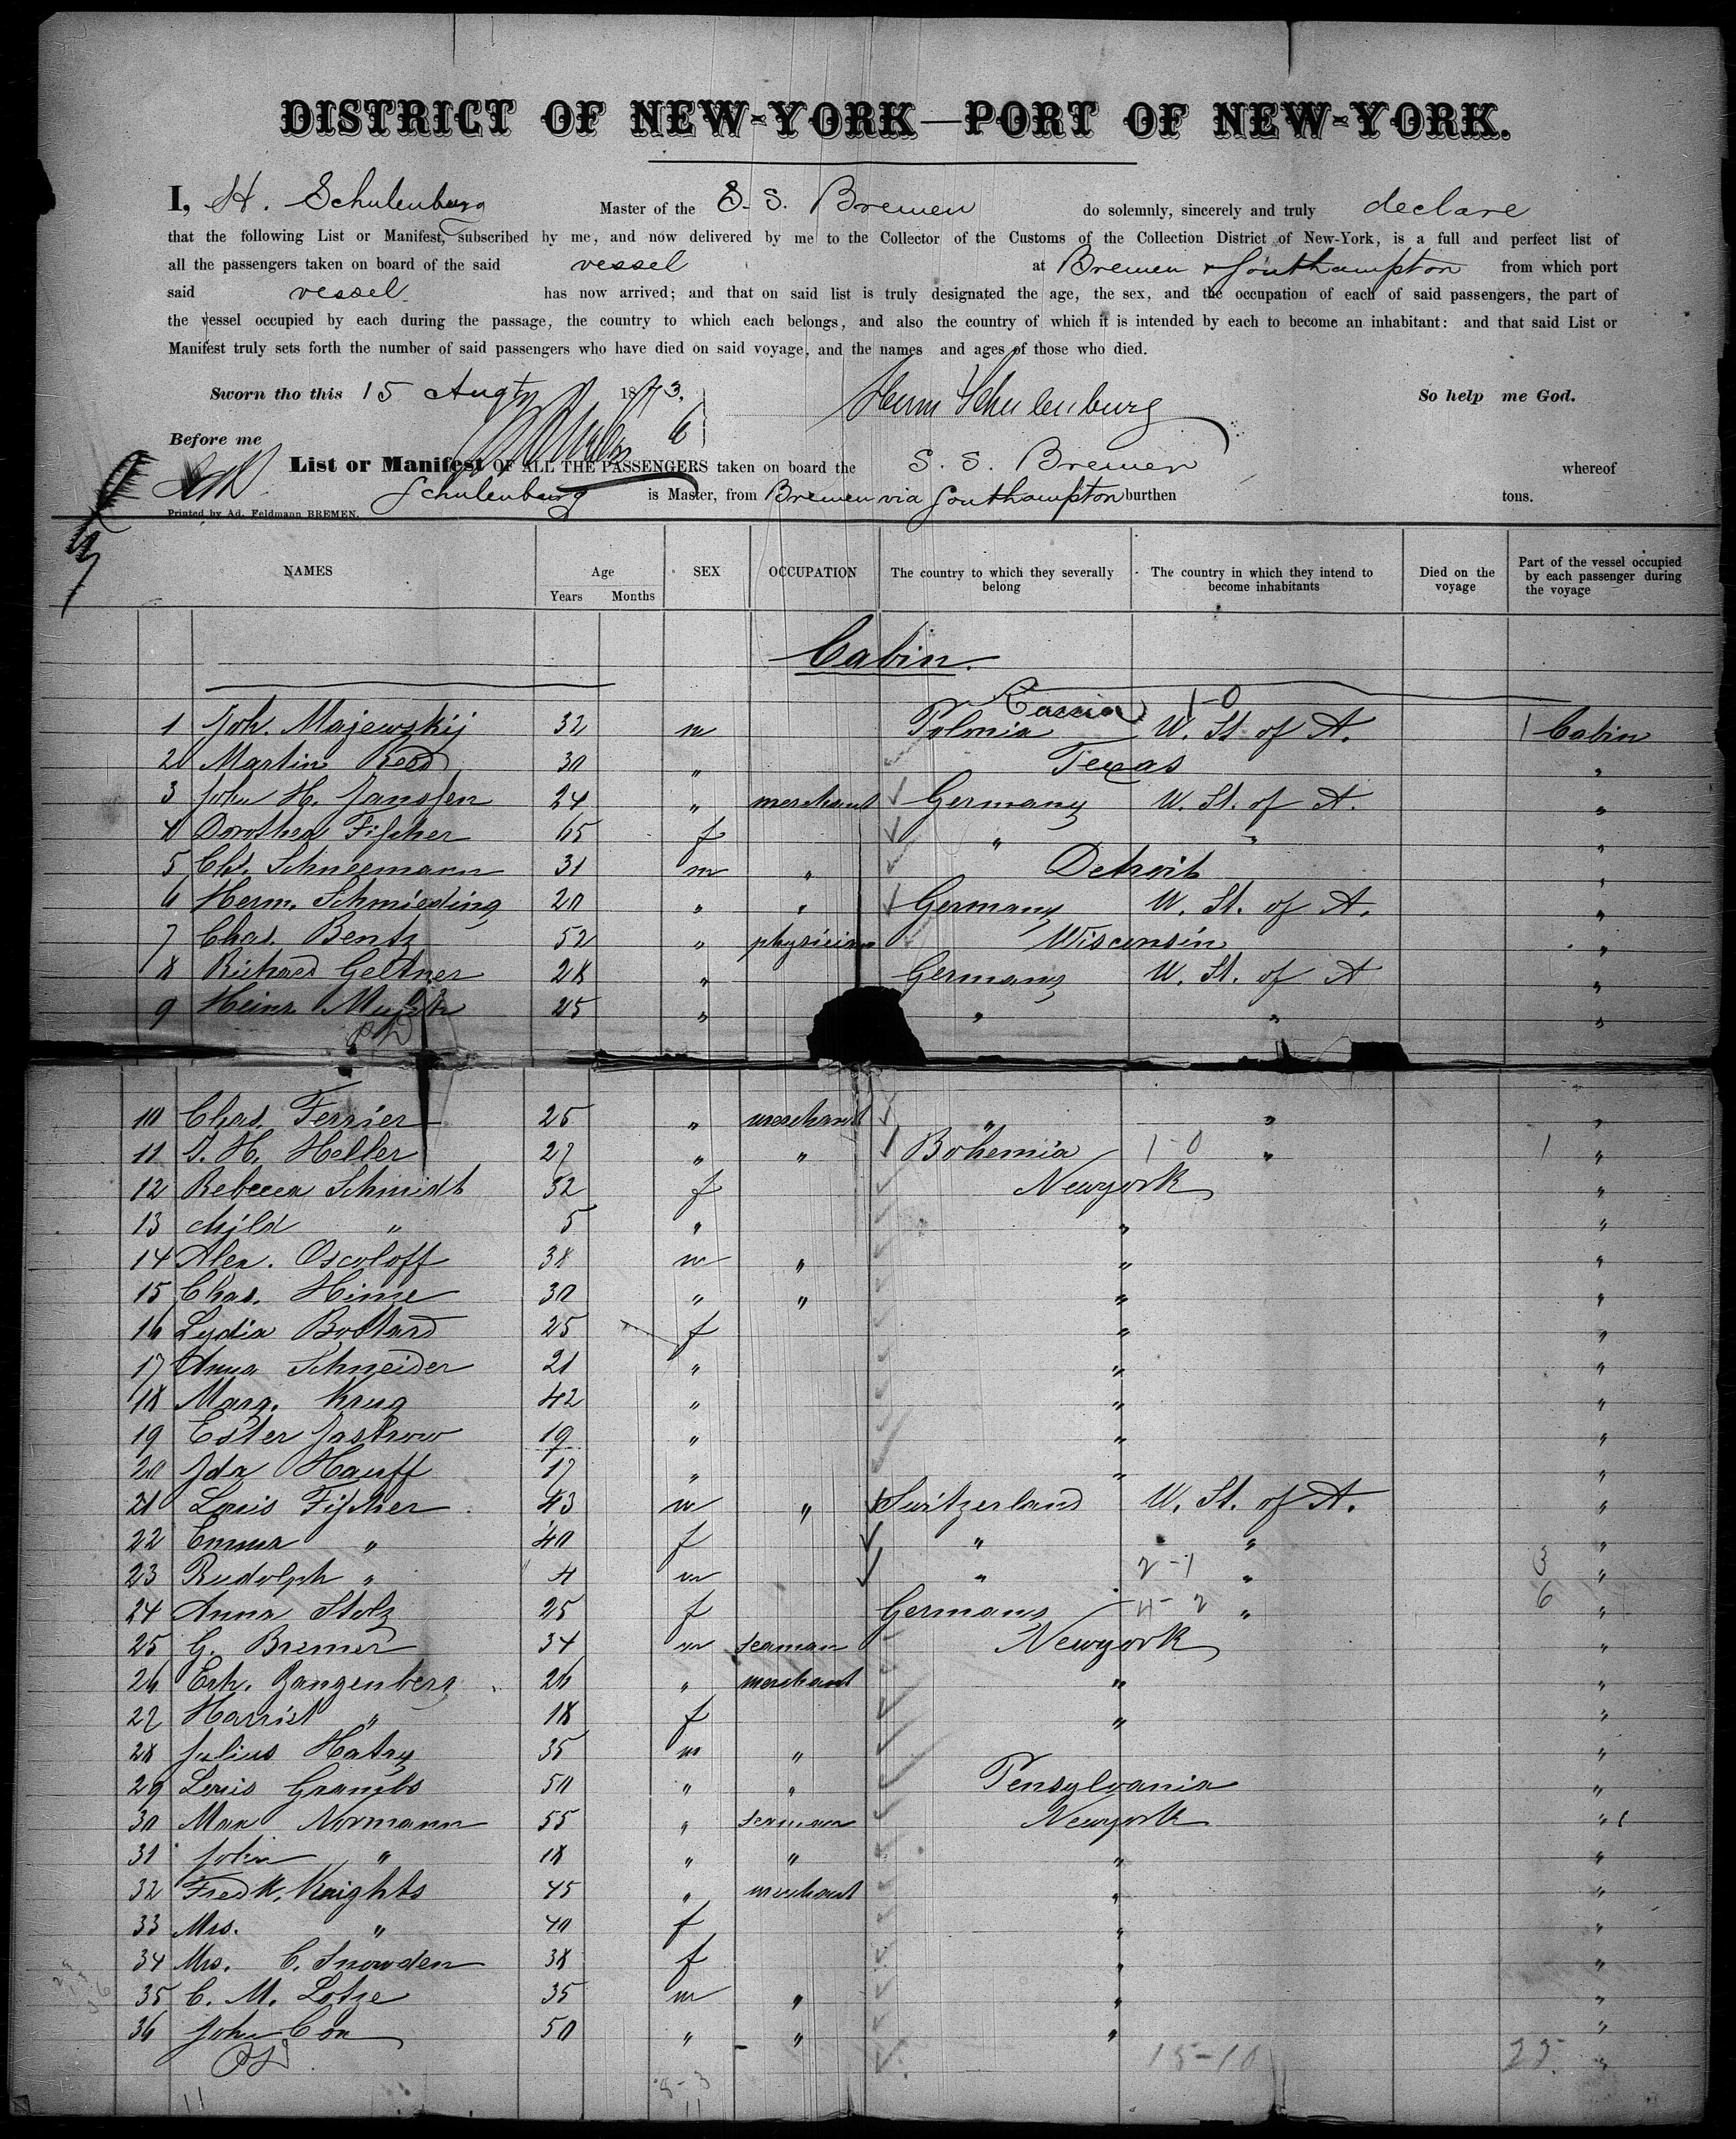 DISTRICT OF NEW-YORK—PORT OF NEW-YORK.
I, H. Schulenburg Master of the S. S. Bremen do solemnly, sincerely and truly declare
that the following List or Manifest, subscribed by me, and now delivered by me to the Collector of the Customs of the Collection District of New-York, is a full and perfect list of
all the passengers taken on board of the said vessel at Bremen & Southampton from which port
said vessel has now arrived; and that on said list is truly designated the age, the sex, and the occupation of each of said passengers, the part of
the vessel occupied by each during the passage, the country to which each belongs, and also the country of which it is intended by each to become an inhabitant: and that said List or
Manifest truly sets forth the number of said passengers who have died on said voyage, and the names and ages of those who died.
Sworn tho this 15 Augt 1873. Herm Schulenburg So help me God.
Before me
List or Manifest OF ALL THE PASSENGERS taken on board the S. S. Bremen whereof
Schulenburg is Master, from Bremen via Southampton burthen tons.
Printed by Ad. Feldmann BREMEN.
NAMES Age Years Months SEX OCCUPATION The country to which they severally belong The country in which they intend to become inhabitants Died on the voyage Part of the vessel occupied by each passenger during the voyage
Cabin.
Russia 1-0
1 Joh. Majewskij 32 m Polonia U. St. of A. 1 Cabin
2 Martin Reed 30 " Texas "
3 John H. Janssen 24 " merchant Germany U. St. of A. "
4 Dorothea Fischer 65 f " " "
5 Chs. Schneemann 31 m " Detroit "
6 Herm. Schmieding 20 " " Germany U. St. of A. "
7 Chas. Bentz 52 " physician Wisconsin "
8 Richard Geltner 28 " Germany U. St. of A "
9 Heinr. 25 " " " "
10 Chas. Ferrier 25 " merchant " " "
11 J. H. Heller 27 " " Bohemia 1-0 " 1 "
12 Rebecca Schmidt 32 f Newyork "
13 child " 5 " " "
14 Alex. Oscoloff 38 m " " "
15 Chas. Hime 30 " " " "
16 Lydia Bostard 25 f " "
17 Anna Schneider 21 " " "
18 Marg. Krug 42 " " "
19 Ester Jastrow 19 " " "
20 Ida Hauff 17 " " "
21 Louis Fischer 43 m " Switzerland U. St. of A. "
22 Emma " 40 f " " "
23 Rudolph " 4 m " 2-1 " 3 "
24 Anna Stolz 25 f Germany 4-2 " 6 "
25 G. Bremer 34 m seaman Newyork "
26 Erh. Zangenberg 26 " merchant " "
27 Harriet " 18 f " "
28 Julius Hatry 35 m " " "
29 Louis Grambs 50 " " Pensylvania "
30 Max Normann 55 " seaman Newyork "
31 John " 18 " " " "
32 Fredk. Knights 45 " merchant " "
33 Mrs. " 40 f " "
34 Mrs. C. Snowden 38 f " "
35 C. M. Lotze 35 m " " "
36 John Cox 50 " " " "
15-10 25 "
8-3
11 11